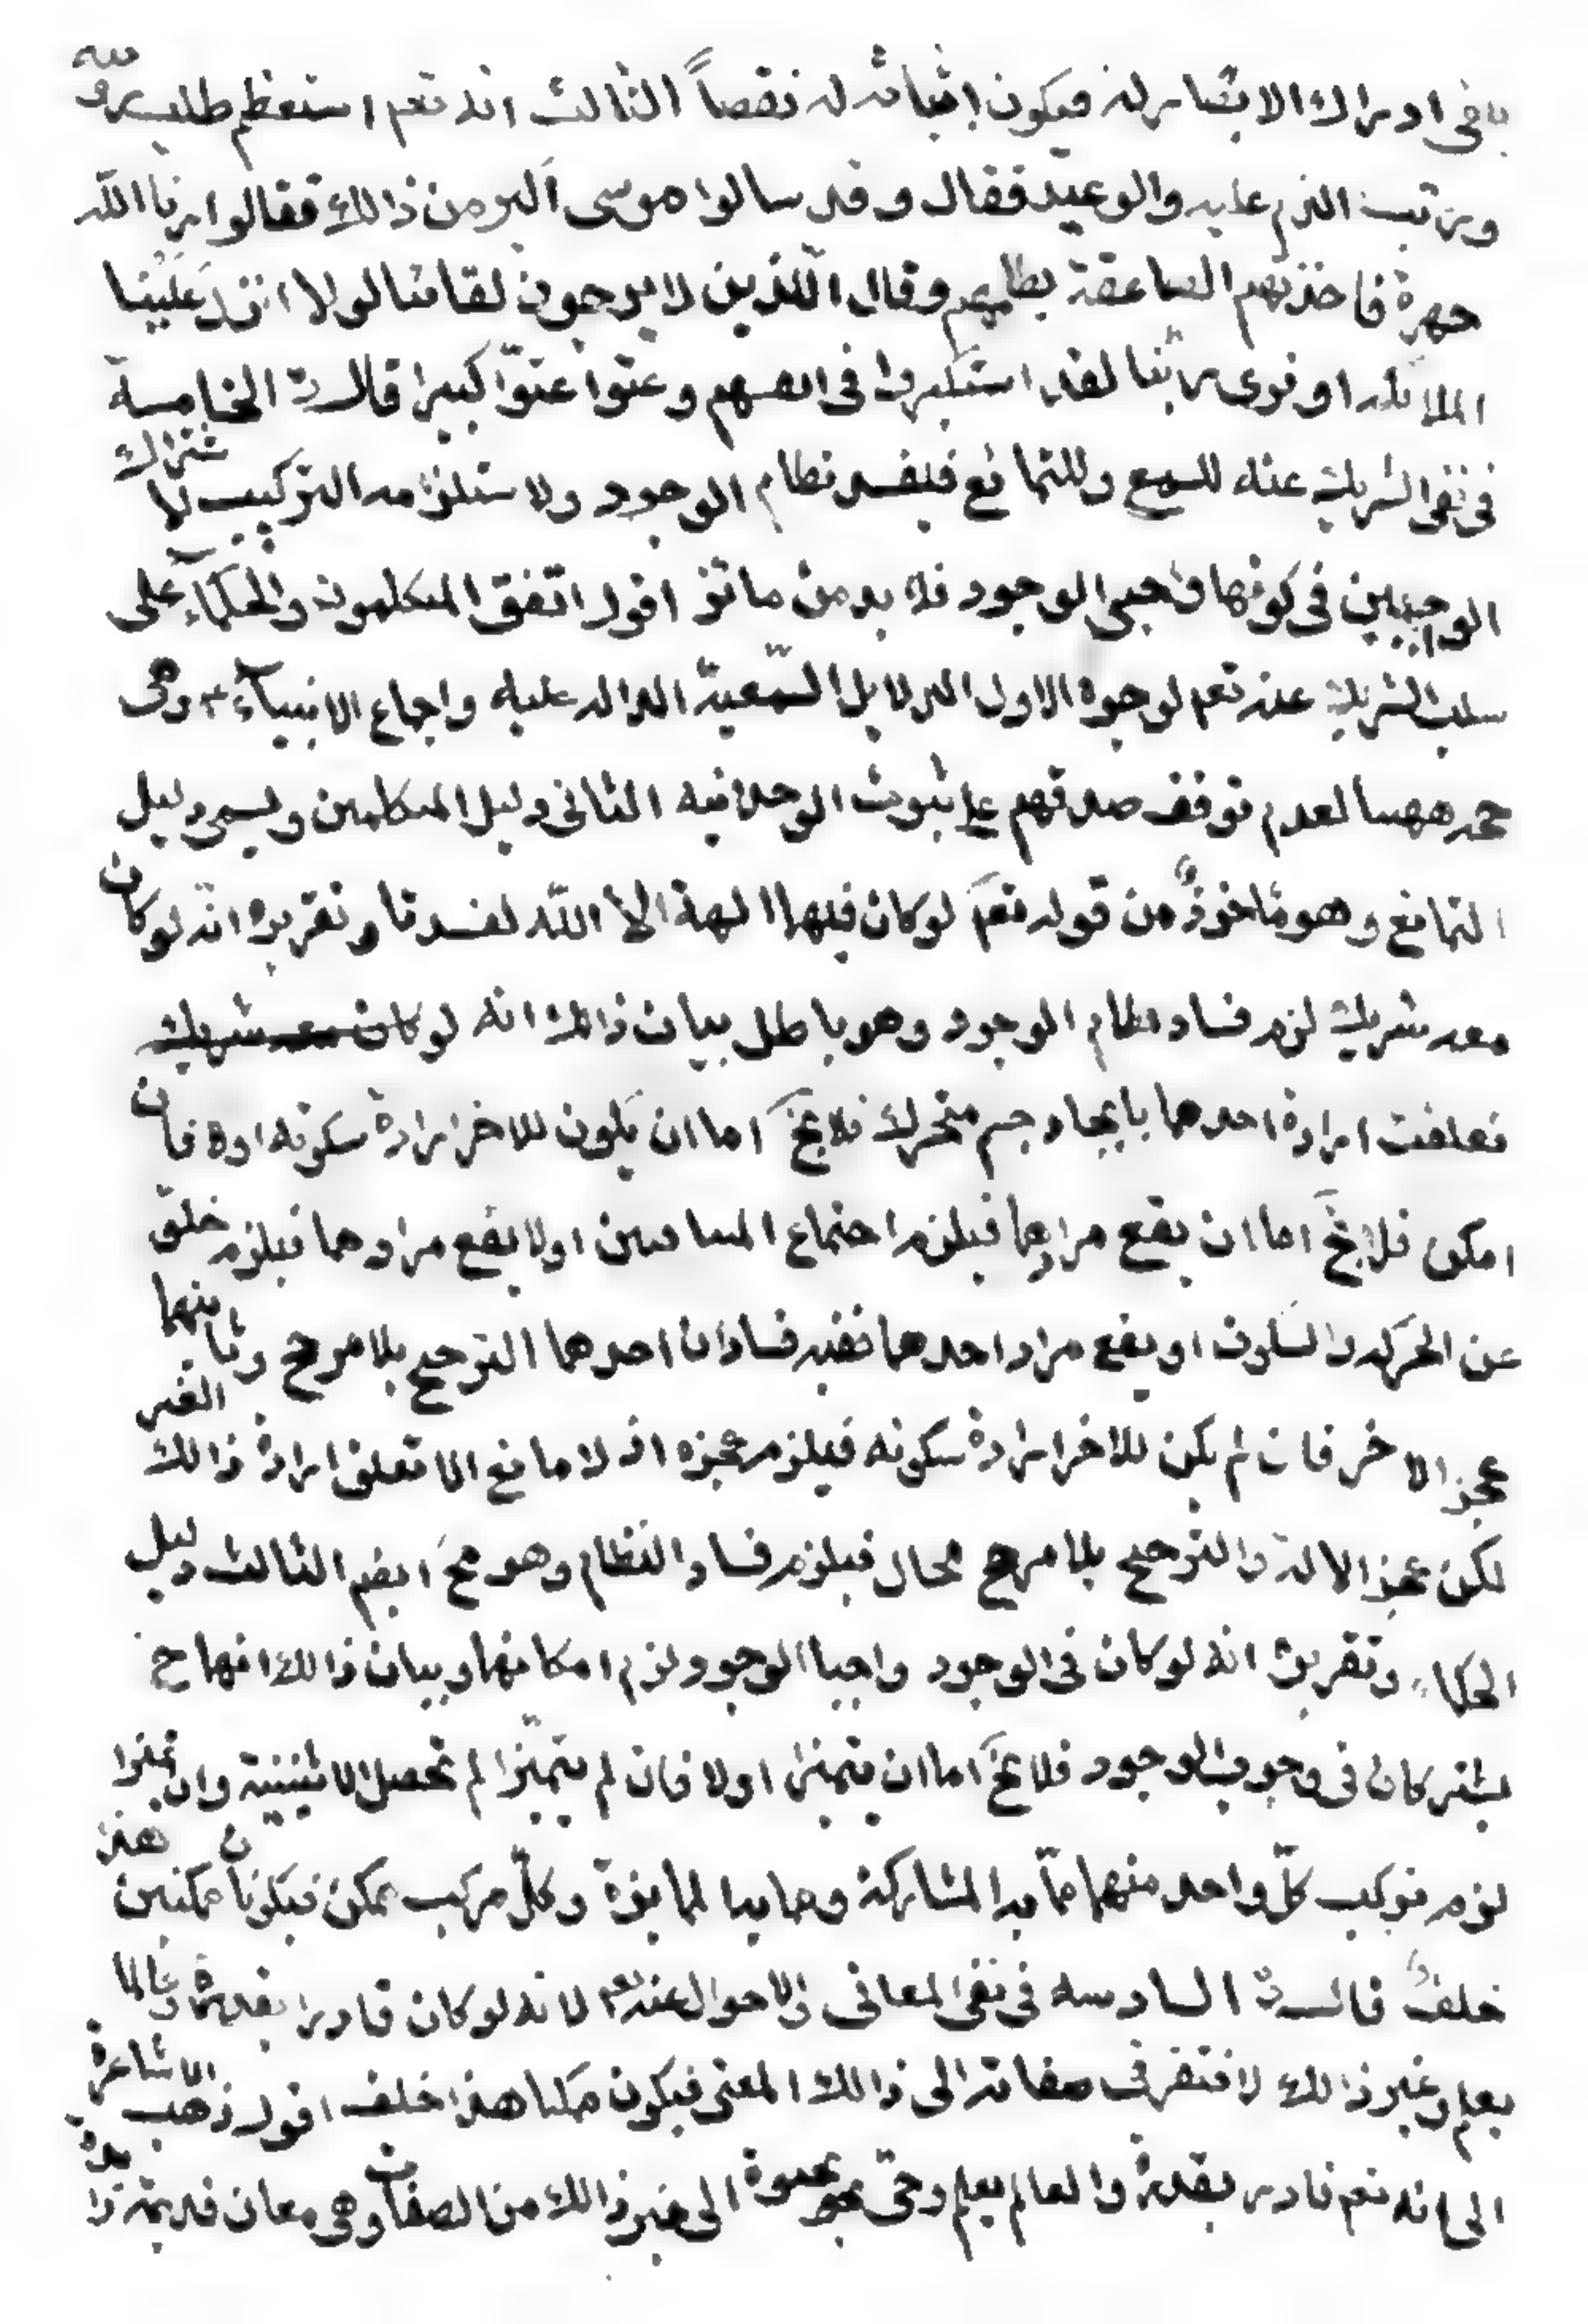 بنفى ادراك الابصار له فيكون اثباته له نقصاً الثالث انه تعم استعظم طلب رؤيته
ورتب الذم عليه والوعيد فقال وقد سالوا موسى اكبر من ذالك فقالوا ارنا الله
جهرة فاخذتهم الصاعقة بظلمهم وقال الّذين لا يرجون لقائنا لولا انزل عَلَيْنا
الملائكه او نرى ربّنا لقد استكبروا فى انفسهم وعتوا عتوّا كبيرا قال الخامسة
فى نفى الشريك عنه للسمع وللتمانع فيفسد نظام الوجود ولاستلزامه التركيب لاشتراك
الواجبين فى كونهما واجبى الوجود فلا بد من مائز اقول اتفق المتكلمون والحكمآء على
سلب الشريك عنه تعم لوجوه الاول الدلايل السّمعيّة الداله عليه واجماع الانبيآء ع وهى
حجه ههنا لعدم توقف صدقهم على ثبوت الوحدانيه الثانى دليل المتكلمين ويسمى دليل
التمانع وهو مأخوذٌ من قوله تعم لو كان فيهما الهة الا الله لفسدتا وتقريره انّه لو كان
معه شريك لزم فساد نظام الوجود وهو باطل بيان ذالك انه لو كان معه شريك
تعلقت ارادة احدهما بايجاد جسم متحرك فلا يخ اما ان يكون للاخر ارادة سكونه اولا فان
امكن فلا يخ اما ان يقع مرادهما فيلزم اجتماع المتنافيين اولا يقع مرادهما فيلزم خلوّ
عن الحركه والسكون او يقع مراد احدهما ففيه فسادان احدهما الترجيح بلا مرجح وثانيهما
عجز الاخر فان لم يكن للاخر ارادة سكونه فيلزم عجزه اذ لا مانع الا تعلق ارادة ذالك الغير
لكن عجز الاله والترجيح بلا مرجح محال فيلزم فساد النظام وهو مح ايضم الثالث دليل
الحكماء وتقريره انه لو كان فى الوجود واجبا الوجود لزم امكانهما وبيان ذالك انهما ح
يشتركان فى وجوب الوجود فلا يخ اما ان يتميزا اولا فان لم يتميّزا لم تحصل الاثنينية وان تميزا
لزم تركب كلّ واحد منهما ممّا به المشاركة ومما به الممايزة وكلّ مركب ممكن فيكونان ممكنين هذا
خلفٌ قال السادسه فى نفى المعانى والاحوال عنه تعم لانه لو كان قادرا بقدرة وعالما
بعلم وغير ذالك لافتقر فى صفاته الى ذالك المعنى فيكون ممكنا هذا خلف اقول ذهب الاشاعرة
الى انه تعم قادر بقدرة والعالم بعلم وحىّ بحيوة الى غير ذالك من الصفات وهى معان قديمة زايدة